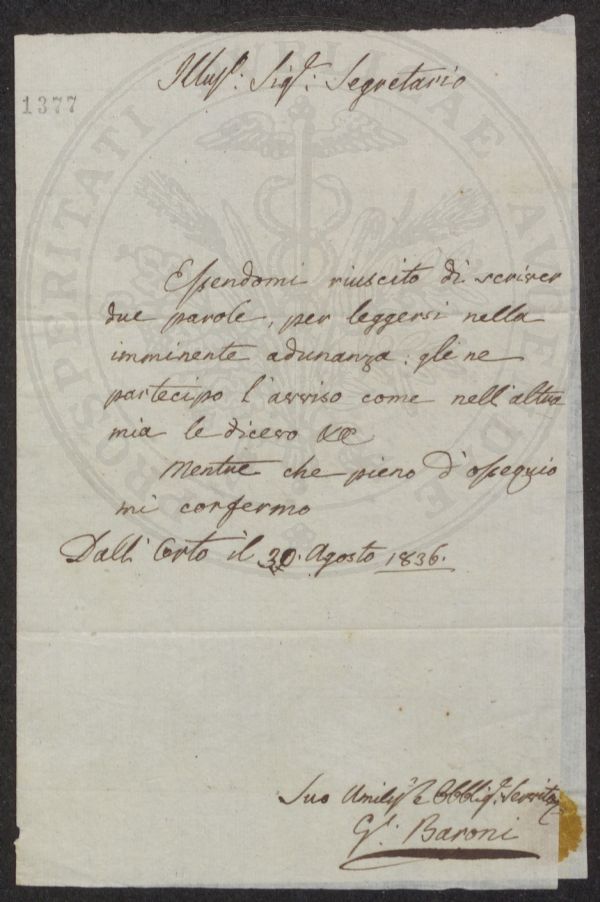 Illus.: Sig.: Segretario
1377
Essendomi riuscito di scriver
due parole, per leggersi nella
imminente adunanza: gli ne
partecipo l'avviso come nell'altra
mia le dicevo &c
Mentre che pieno d'ossequio
mi confermo
Dall' Orto il 30. Agosto 1836.
Suo Umilis. e Obblig. Servito
G. Baroni
PROSPERITATI PUBLICAE AUGE